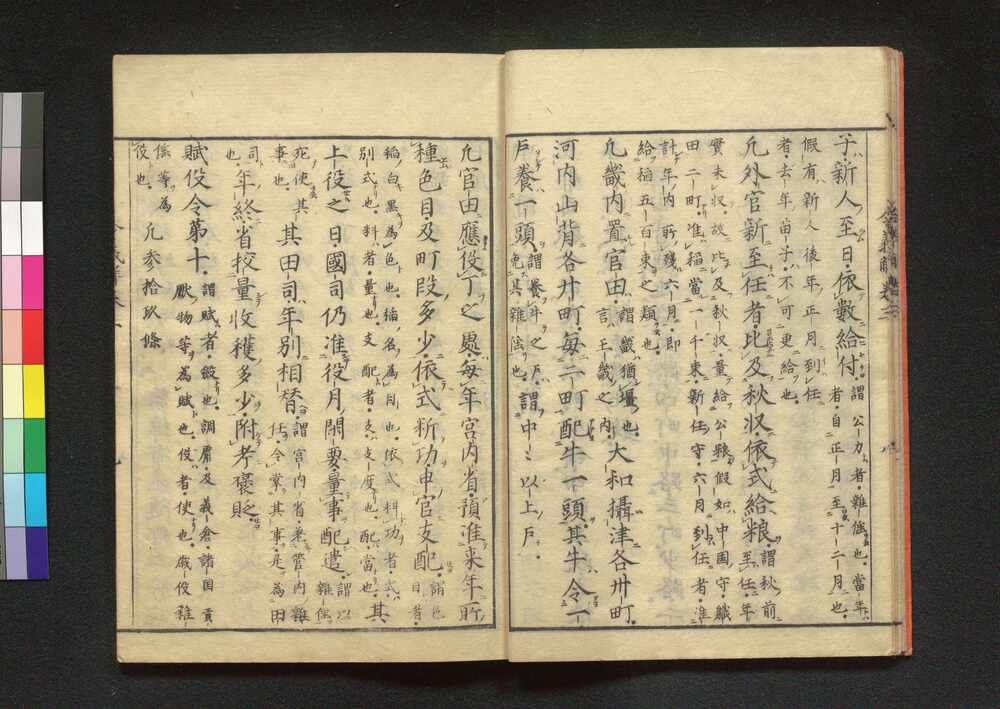 子新人至日依數給付謂公力者雜徭也當年者自正月至十二月也
假有新人後年正月到任
者去年苗子不可更給也
凡外官新至任者比及秋収依式給粮謂秋前至任年
實未収故比及秋収量給公粮假如中国守職
田二町准稲當一千束新任守六月到任者准
計年内所殘六月即
給稲五百束之類也
凡畿内置官田謂畿猶壃也言王畿之内大和攝津各卅町
河内山背各廾町毎二町配牛一頭其牛令一
戸養一頭謂養牛之戸免其雜徭也謂中々以上戸
凡官田應役丁之處毎年宮内省預准来年所
種色目及町段多少依式料功申官支配謂色目者
稲白黒為色也稲名為目也依式料功者式
別式也料者量也支配者支支度也配配當也其
上役之日國司仍准役月閑要量事配遣謂以雜徭
死使其事也其田司年別相替謂宮内省兼管内雜任令掌其事是為田
司也年終省挍量收穫多少附考褒貶
賦役令第十謂賦者斂也調庸及義倉諸国貢獻物等為賦也役者使也歳役雜
徭等為役也凡參拾玖條